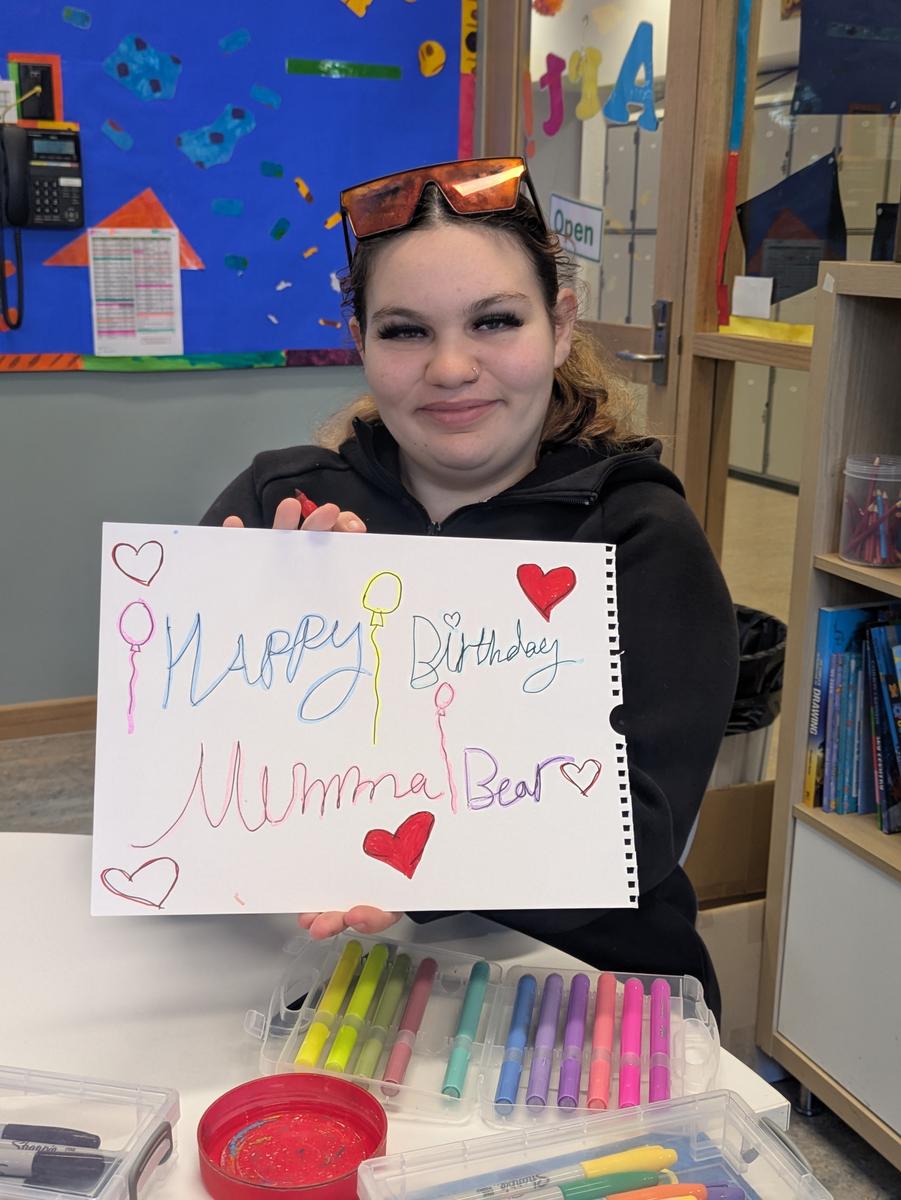 Open
HAPPY Birthday
Mumma Bear
DRAWING
Sharpie
Sharpie